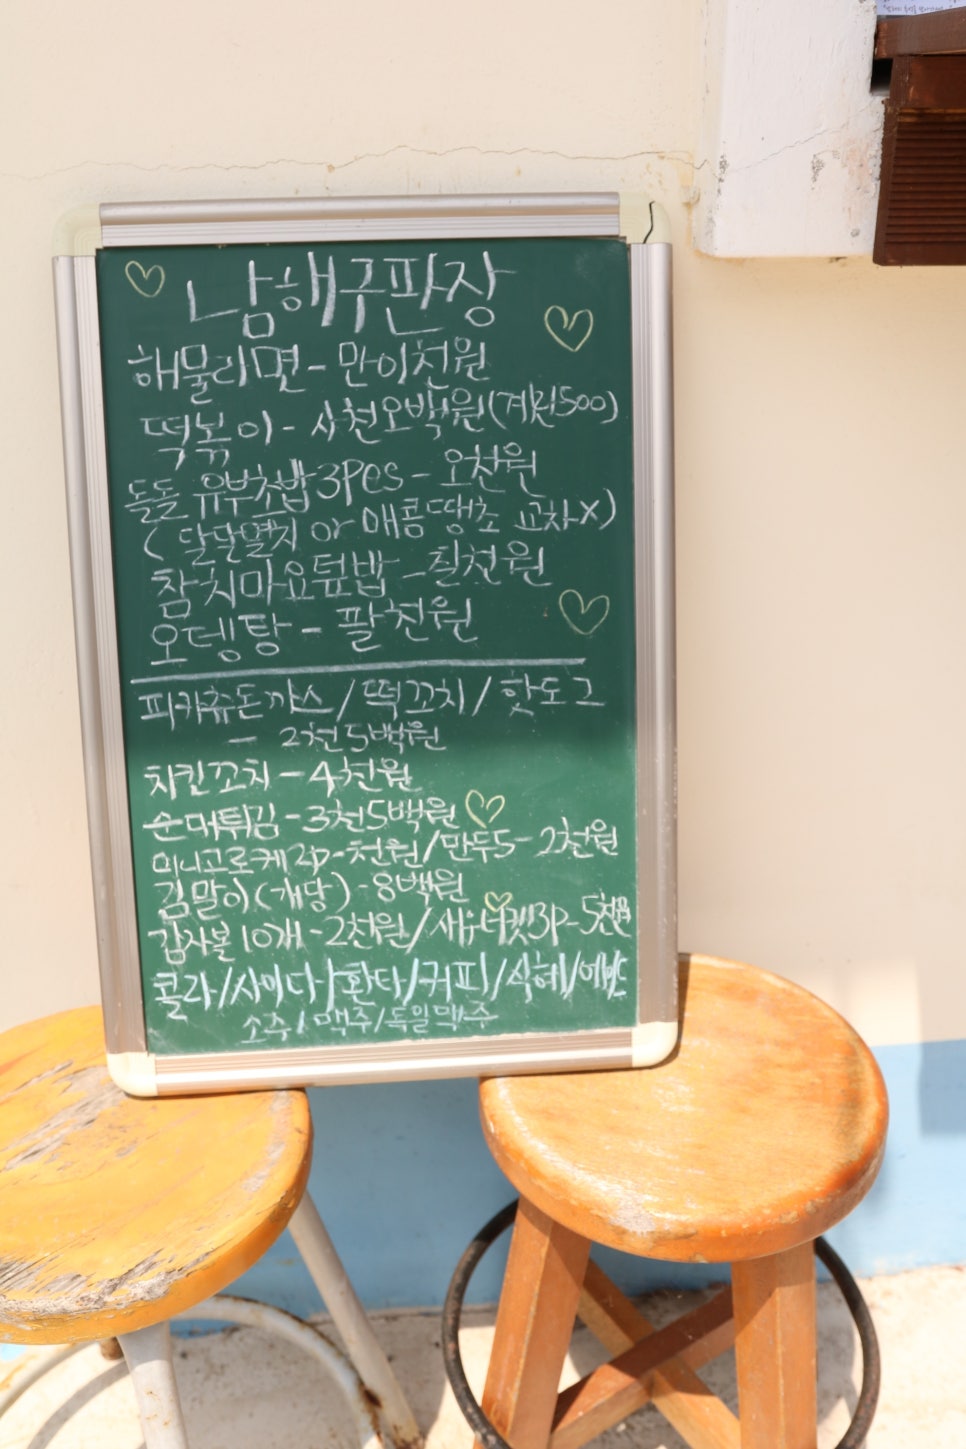 남해구판장
해물라면 - 만이천원
떡볶이 - 사천오백원(계란500)
돌돌 유부초밥 3pcs - 오천원
(달달멸치 or 매콤땡초 교차X)
참치마요덮밥 - 칠천원
오뎅탕 - 팔천원
피카츄돈까스/떡꼬치/핫도그
- 2천5백원
치킨꼬치 - 4천원
순머튀김 - 3천5백원
미니고로케 2p - 천원/만두5 - 2천원
김말이(개당) - 8백원
감자볼 10개 - 2천원/새우너겟3p - 5천원
콜라/사이다/환타/커피/식혜/에이드
소주/맥주/독일맥주